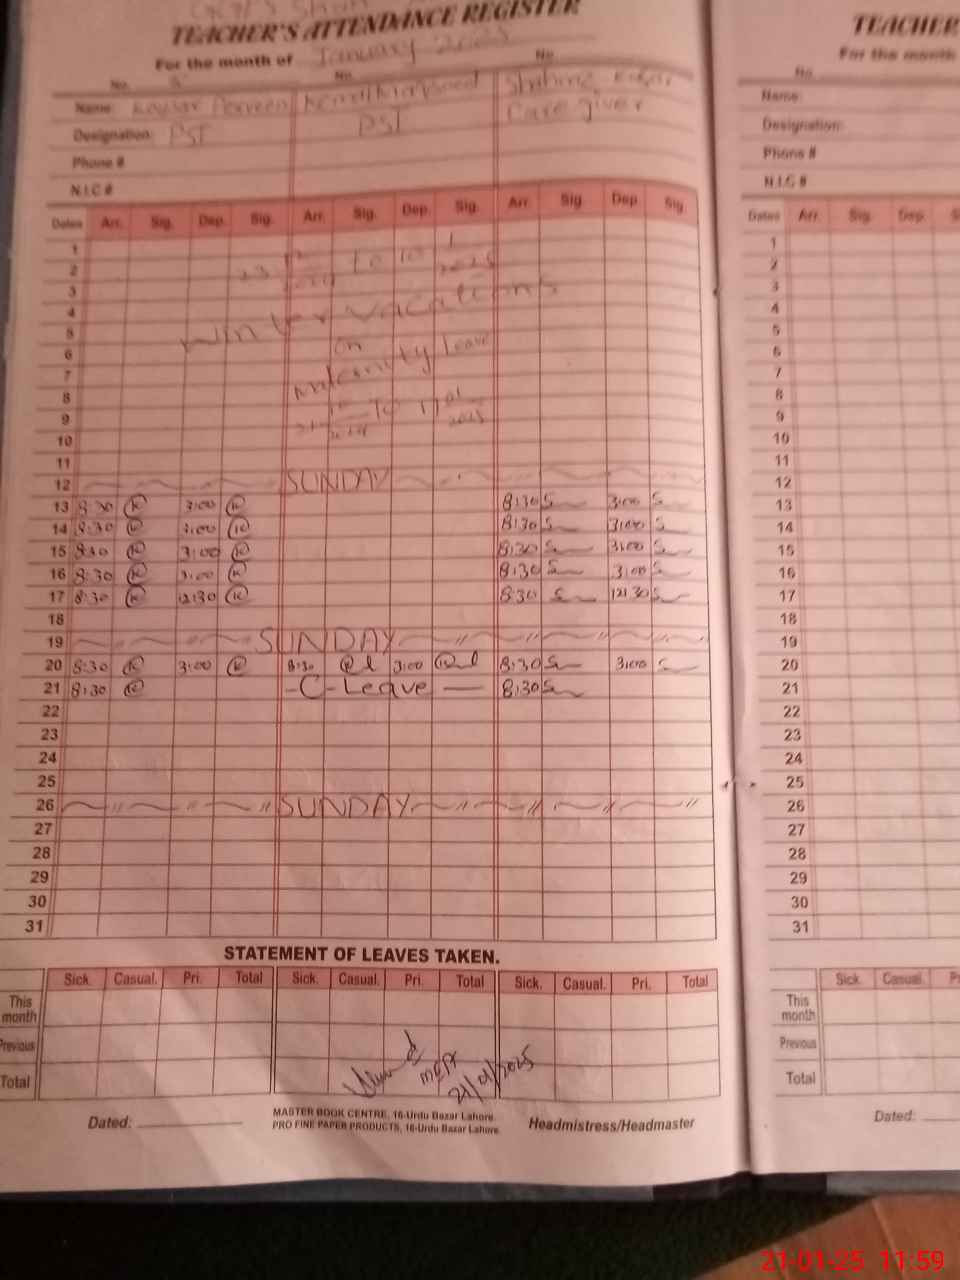 TEACHER'S ATTENDANCE REGISTER
For the month of January 2025
No. No. No.
Name: Kausar Parveen
Designation: PST PST Care giver
Phone #
N.I.C #
Dates Arr. Sig. Dep. Sig. Arr. Sig. Dep. Sig. Arr. Sig. Dep. Sig.
1
2
3
4
5
6
7
8
9
10
11
winter vacations
on
maternity leave
12 SUNDAY
13 8:30 K 3:00 K 8:30 S 3:00 S
14 8:30 K 3:00 K 8:30 S 3:00 S
15 8:30 K 3:00 K 8:30 S 3:00 S
16 8:30 K 3:00 K 8:30 S 3:00 S
17 8:30 K 12:30 K 8:30 S 12:30 S
18
19 SUNDAY
20 8:30 K 3:00 K 8:30 3:00 8:30 S 3:00 S
21 8:30 K -C-Leave- 8:30 S
22
23
24
25
26 SUNDAY
27
28
29
30
31
STATEMENT OF LEAVES TAKEN.
Sick. Casual. Pri. Total Sick. Casual. Pri. Total Sick. Casual. Pri. Total
This month
Previous
Total
MEA
21/01/2025
Dated:
MASTER BOOK CENTRE, 16-Urdu Bazar Lahore.
PRO FINE PAPER PRODUCTS, 16-Urdu Bazar Lahore.
Headmistress/Headmaster
TEACHER
For the month
No.
Name:
Designation:
Phone #
N.I.C #
Dates Arr. Sig. Dep.
1
2
3
4
5
6
7
8
9
10
11
12
13
14
15
16
17
18
19
20
21
22
23
24
25
26
27
28
29
30
31
Sick. Casual.
This month
Previous
Total
Dated:
21-01-25 11:59